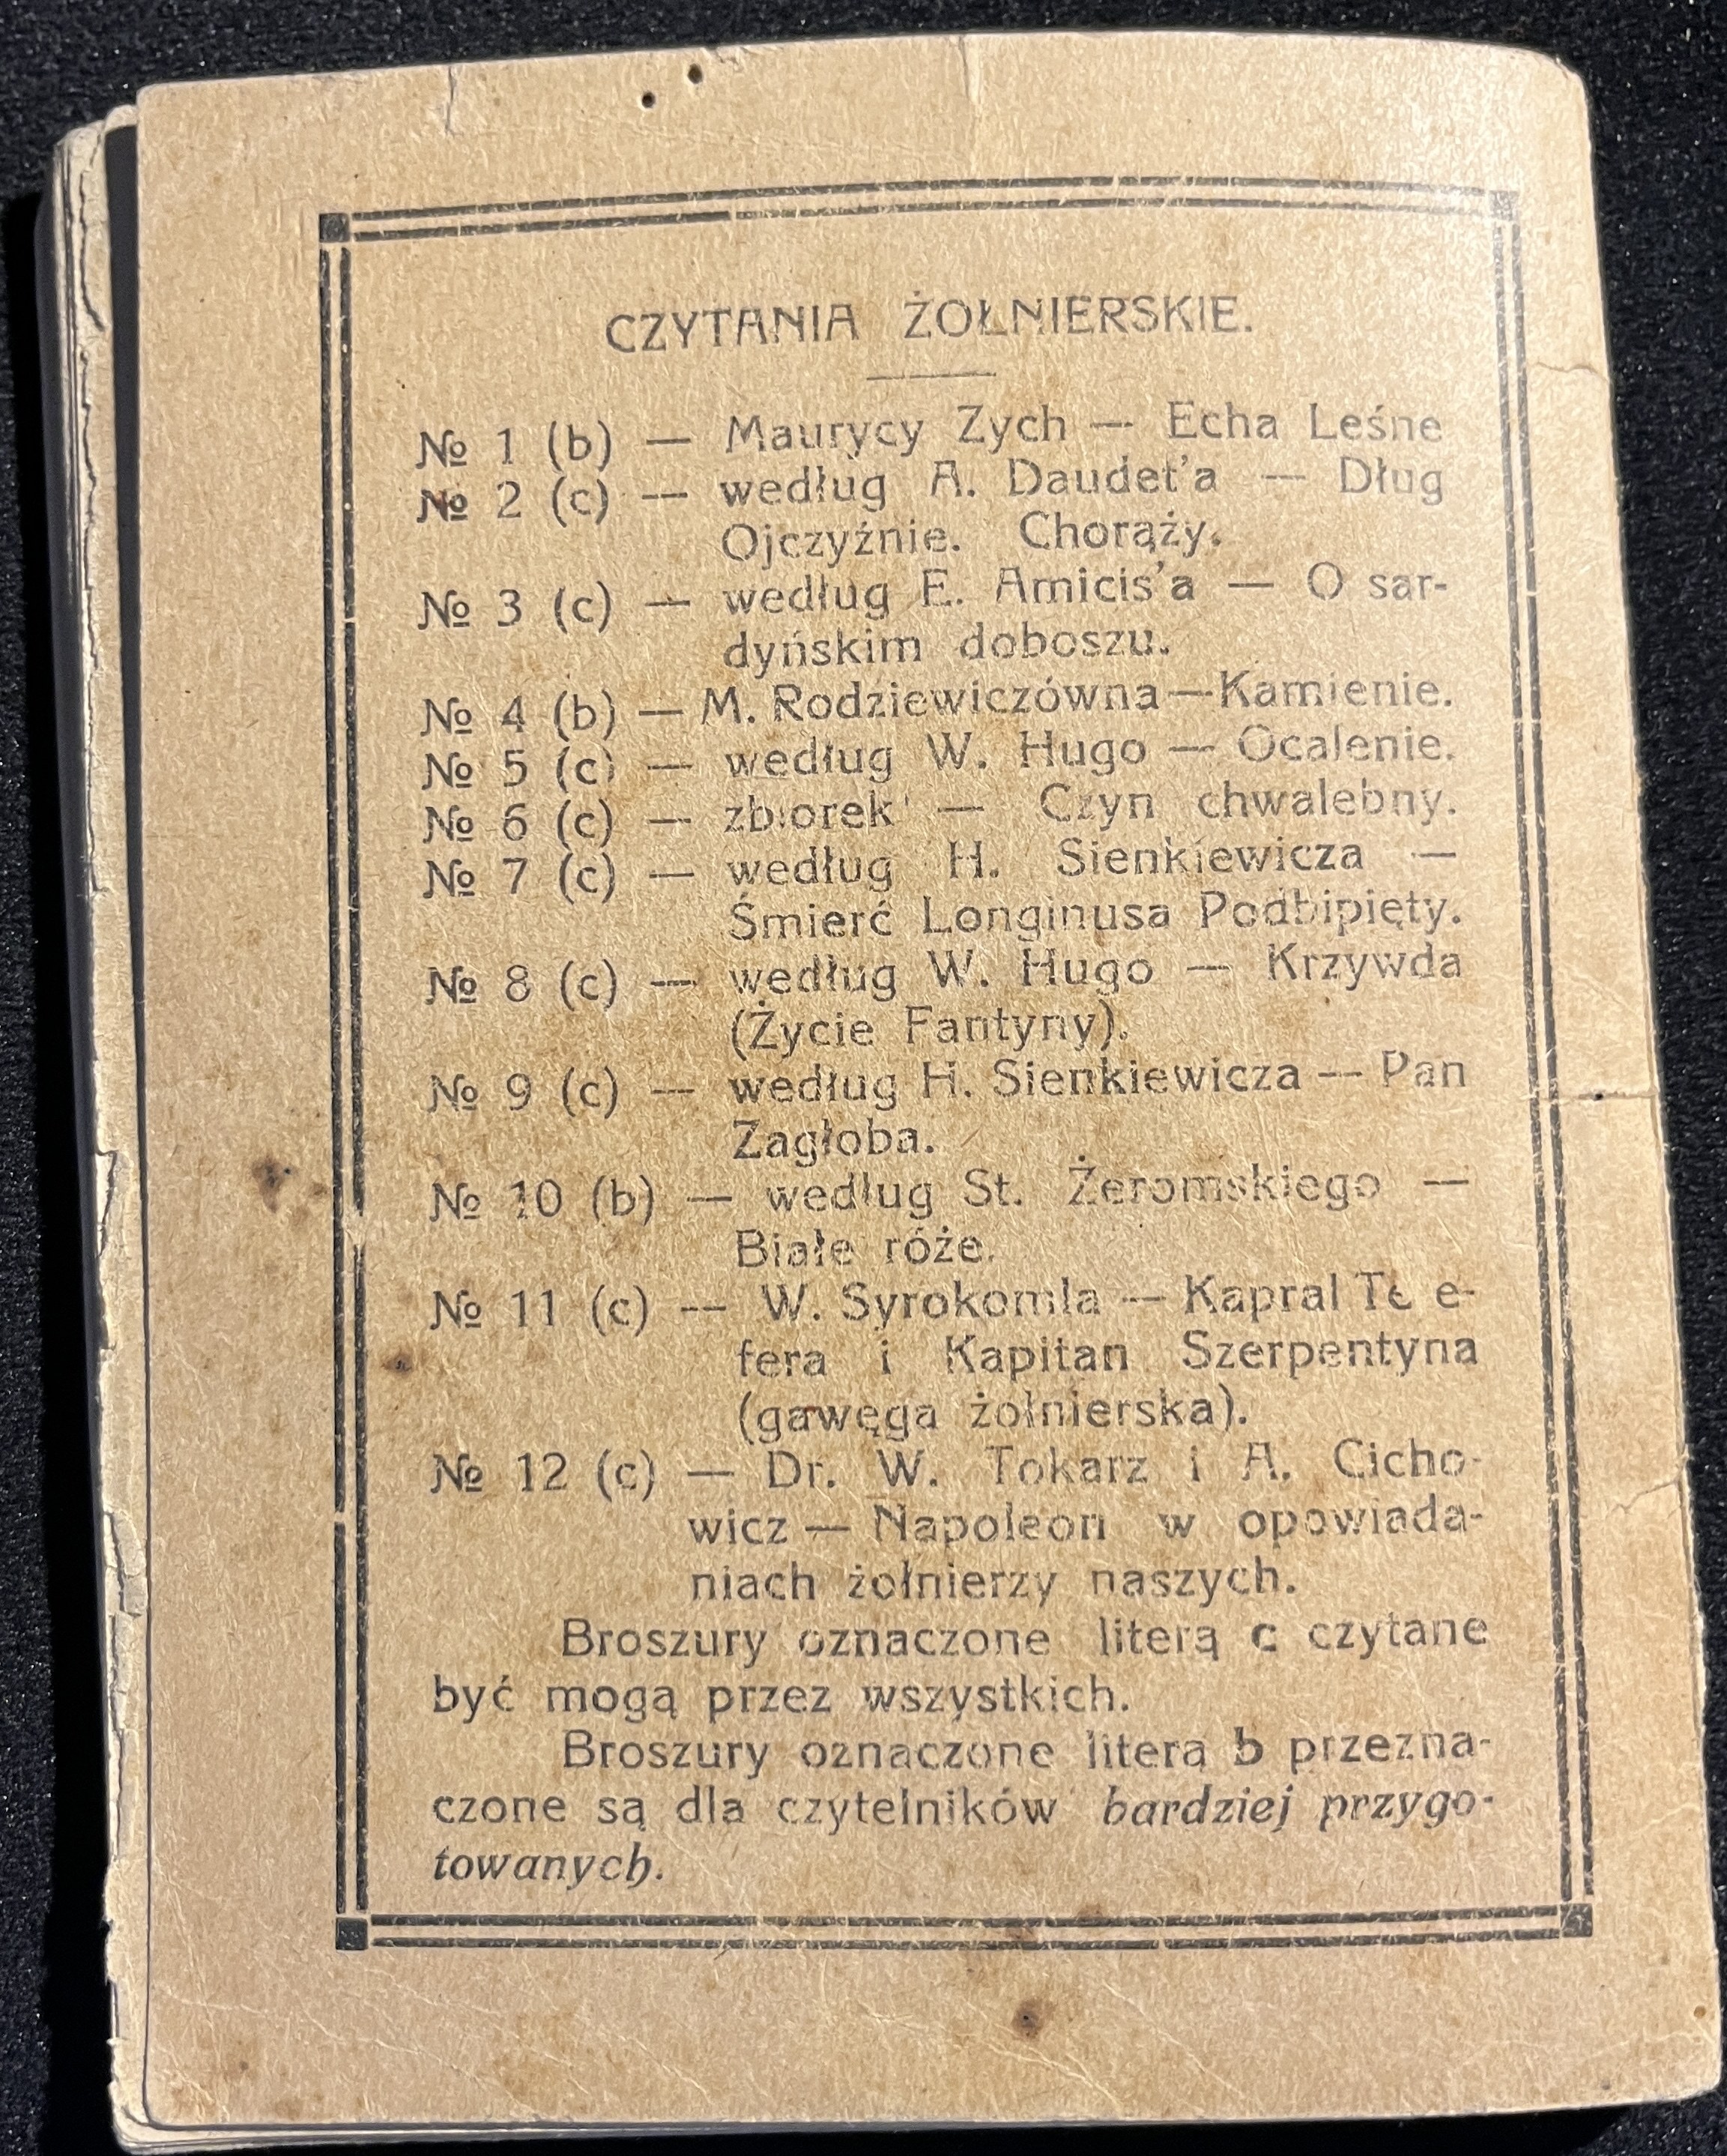 CZYTANIA ŻOŁNIERSKIE.
№ 1 (b) — Maurycy Zych — Echa Leśne
№ 2 (c) — według A. Daudet'a — Dług
Ojczyźnie. Chorąży.
№ 3 (c) — według E. Amicis'a — O sar-
dyńskim doboszu.
№ 4 (b) — M. Rodziewiczówna — Kamienie.
№ 5 (c) — według W. Hugo — Ocalenie.
№ 6 (c) — zbiorek — Czyn chwalebny.
№ 7 (c) — według H. Sienkiewicza —
Śmierć Longinusa Podbipięty.
№ 8 (c) — według W. Hugo — Krzywda
(Życie Fantyny).
№ 9 (c) — według H. Sienkiewicza — Pan
Zagłoba.
№ 10 (b) — według St. Żeromskiego —
Białe róże.
№ 11 (c) — W. Syrokomla — Kapral
fera i Kapitan Szerpentyna
(gawęga żołnierska).
№ 12 (c) — Dr. W. Tokarz i A. Cicho-
wicz — Napoleon w opowiada-
niach żołnierzy naszych.
Broszury oznaczone literą c czytane
być mogą przez wszystkich.
Broszury oznaczone literą b przezna-
czone są dla czytelników bardziej przygo-
towanych.